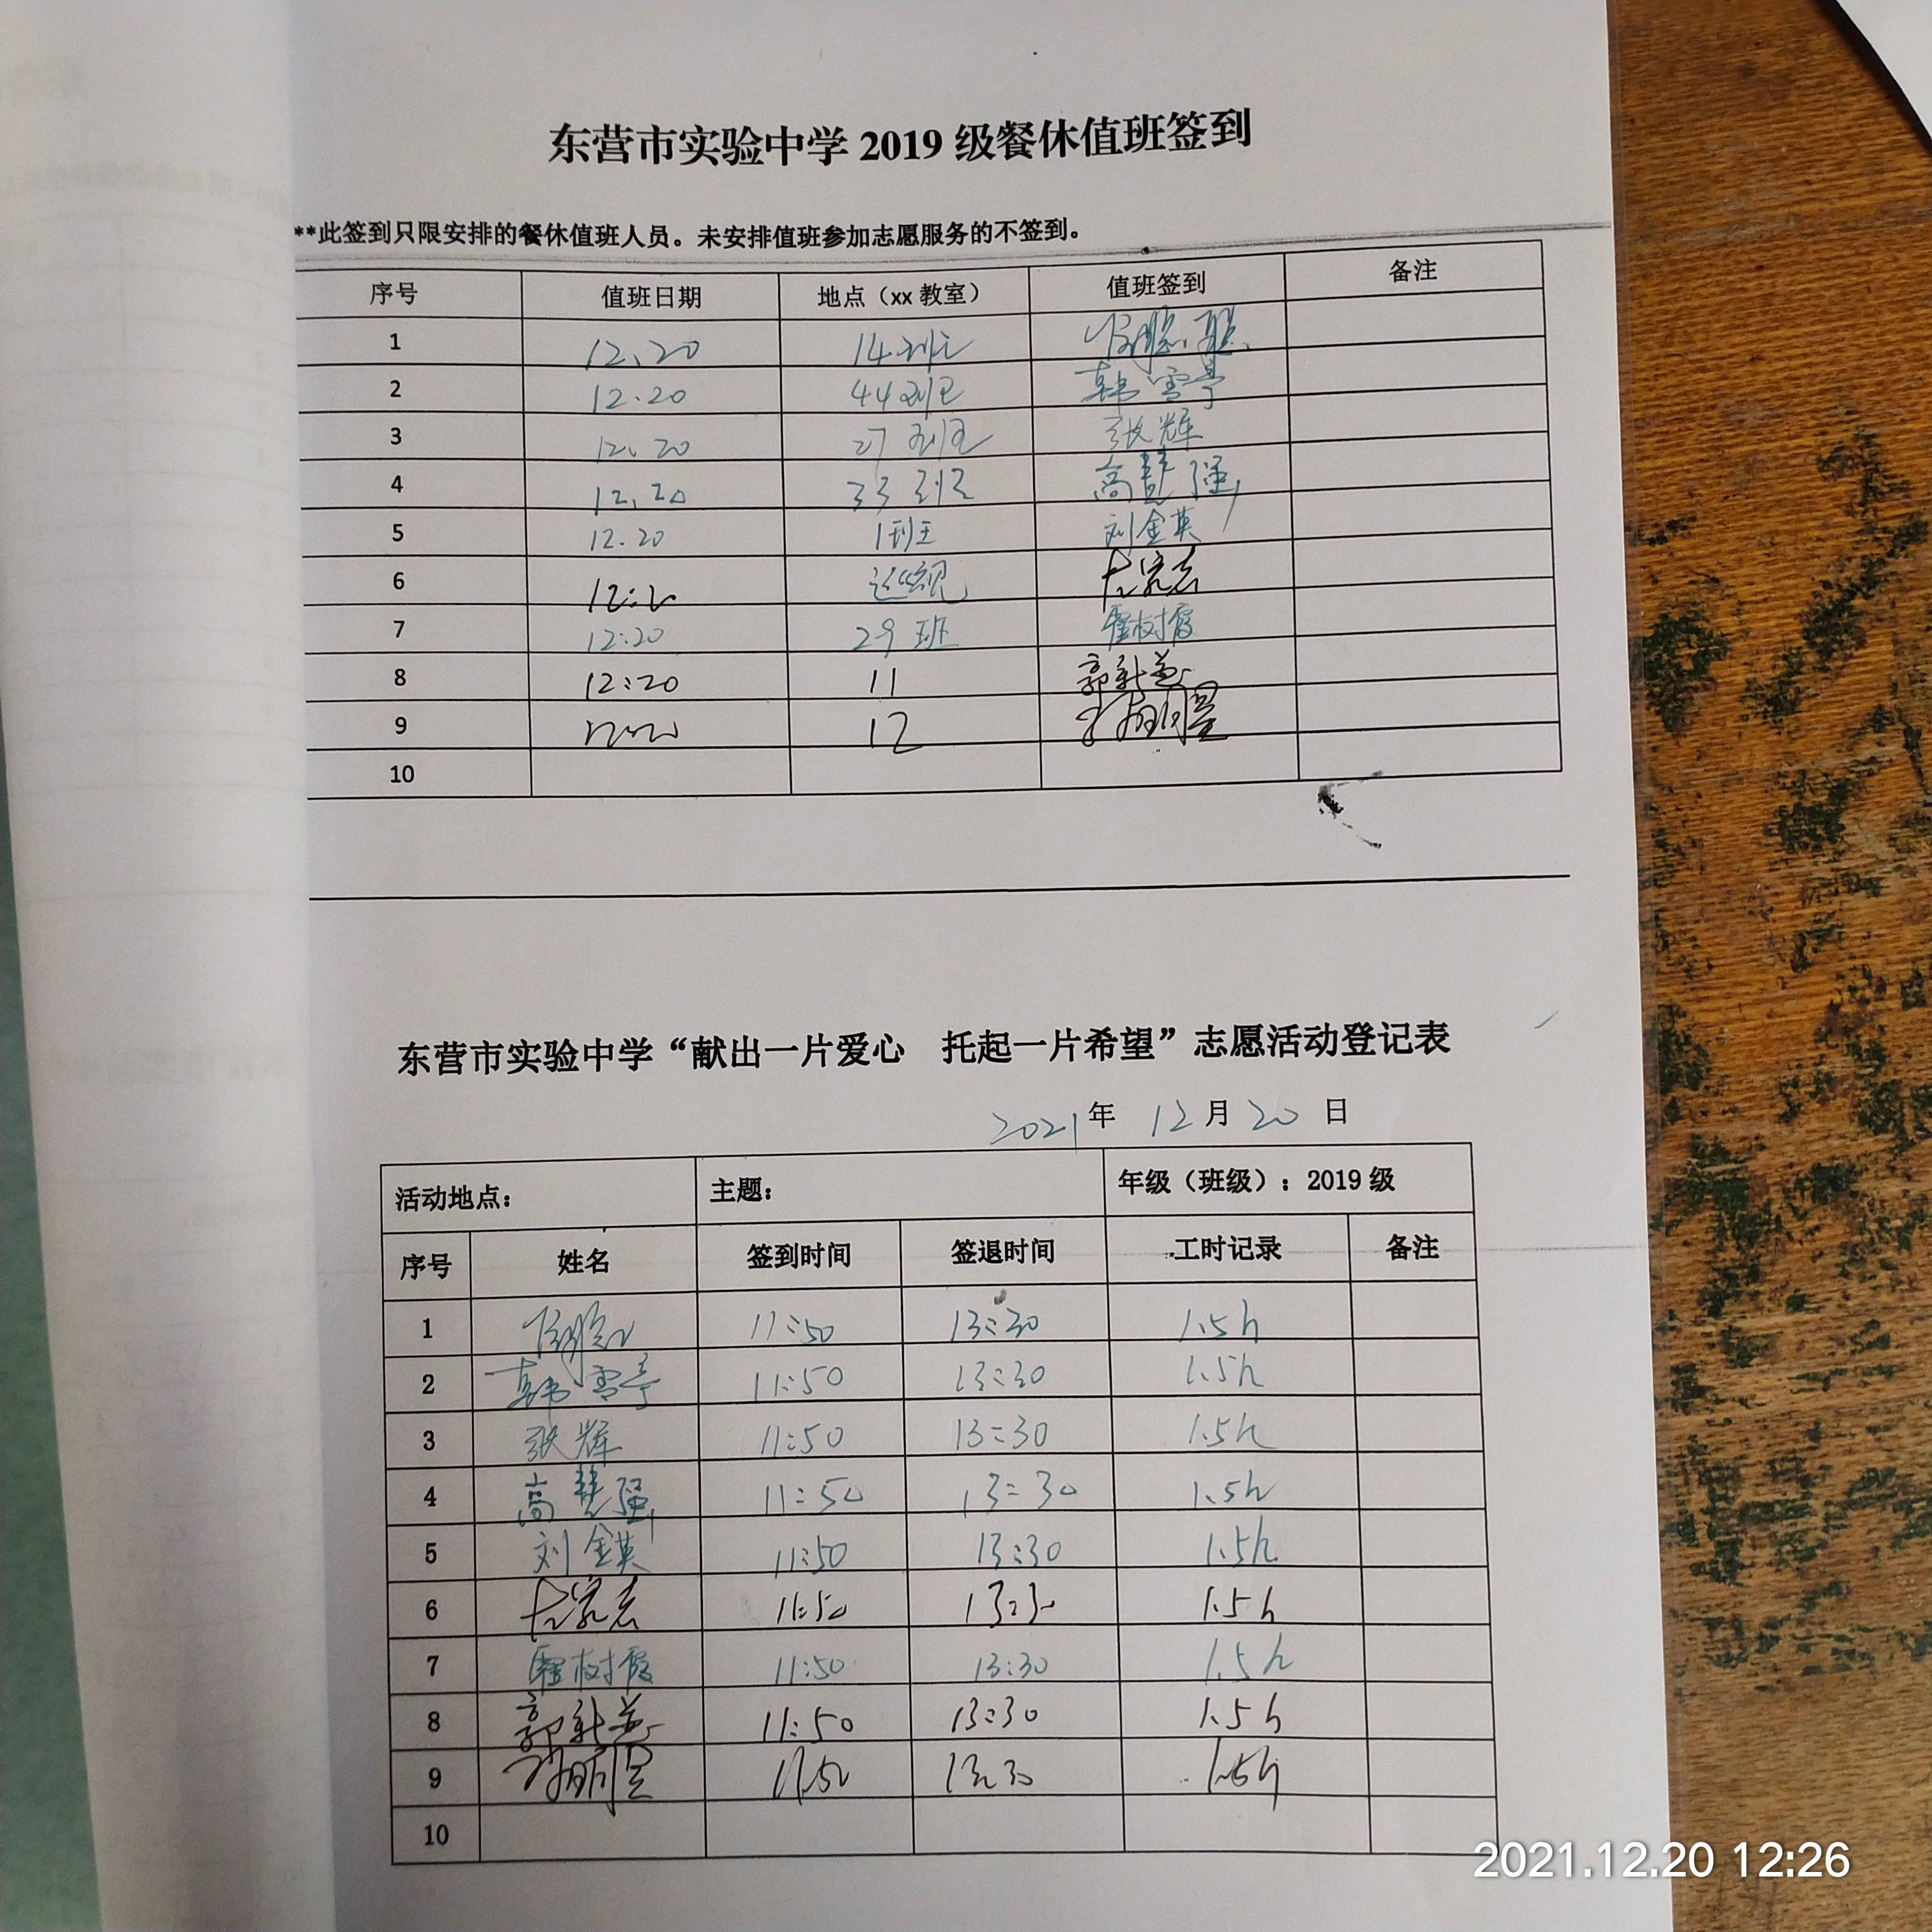 东营市实验中学 2019 级餐休值班签到
**此签到只限安排的餐休值班人员。未安排值班参加志愿服务的不签到。
序号 值班日期 地点（xx 教室） 值班签到 备注
1 12.20 14班
2 12.20 44班 韩雪亭
3 12.20 27班 张辉
4 12.20 33班 高慧强
5 12.20 1班 刘金英
6 12:20 巡视
7 12:20 29班 霍树霞
8 12:20 11 郭新益
9 12
10
东营市实验中学“献出一片爱心 托起一片希望”志愿活动登记表
2021 年 12 月 20 日
活动地点： 主题： 年级（班级）：2019 级
序号 姓名 签到时间 签退时间 工时记录 备注
1 11:50 13:30 1.5h
2 韩雪亭 11:50 13:30 1.5h
3 张辉 11:50 13:30 1.5h
4 高慧强 11:50 13:30 1.5h
5 刘金英 11:50 13:30 1.5h
6 11:50 13:30 1.5h
7 霍树霞 11:50 13:30 1.5h
8 郭新益 11:50 13:30 1.5h
9 11:50 13:30 1.5h
10
2021.12.20 12:26